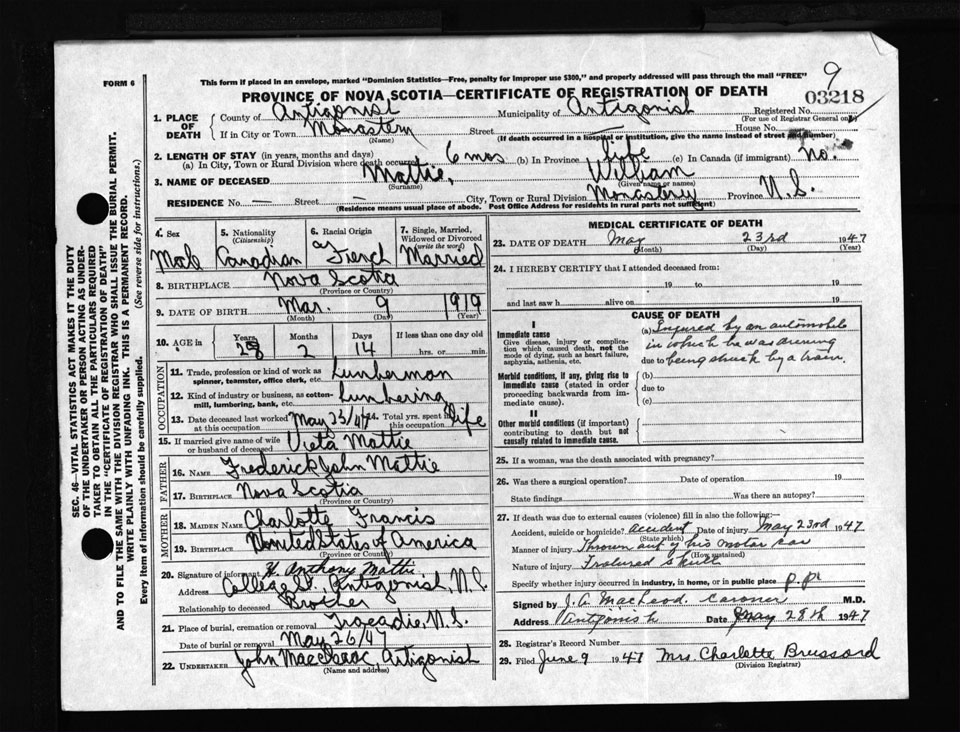 9
FORM 6
This form if placed in an envelope, marked "Dominion Statistics—Free, penalty for improper use $300," and properly addressed will pass through the mail "FREE"
PROVINCE OF NOVA SCOTIA—CERTIFICATE OF REGISTRATION OF DEATH
03218
SEC. 46—VITAL STATISTICS ACT MAKES IT THE DUTY
OF THE UNDERTAKER OR PERSON ACTING AS UNDERTAKER TO OBTAIN ALL THE PARTICULARS REQUIRED
IN THE "CERTIFICATE OF REGISTRATION OF DEATH"
AND TO FILE THE SAME WITH THE DIVISION REGISTRAR WHO SHALL ISSUE THE BURIAL PERMIT.
WRITE PLAINLY WITH UNFADING INK. THIS IS A PERMANENT RECORD.
Every item of information should be carefully supplied. (See reverse side for instructions.)
1. PLACE OF DEATH County of Antigonish Municipality of Antigonish Registered No.
(For use of Registrar General only)
If in City or Town Monastery Street House No.
(Name) (If death occurred in a hospital or institution, give the name instead of street and number)
2. LENGTH OF STAY (in years, months and days)
(a) In City, Town or Rural Division where death occurred 6 mos (b) In Province life (c) In Canada (if immigrant) no.
3. NAME OF DECEASED Mattie, William
(Surname) (Given name or names)
RESIDENCE No. — Street — City, Town or Rural Division Monastery Province N.S.
(Residence means usual place of abode. Post Office Address for residents in rural parts not sufficient)
4. Sex 5. Nationality (Citizenship) 6. Racial Origin 7. Single, Married, Widowed or Divorced (write the word)
Male Canadian French Married
8. BIRTHPLACE Nova Scotia
(Province or Country)
9. DATE OF BIRTH Mar. 9 1919
(Month) (Day) (Year)
10. AGE in Years Months Days If less than one day old
28 2 14 hrs. or min.
OCCUPATION
11. Trade, profession or kind of work as spinner, teamster, office clerk, etc. Lumberman
12. Kind of industry or business, as cotton-mill, lumbering, bank, etc. Lumbering
13. Date deceased last worked at this occupation May 23/47 14. Total yrs. spent in this occupation life
15. If married give name of wife or husband of deceased Mattie
FATHER
16. NAME Frederick John Mattie
17. BIRTHPLACE Nova Scotia
(Province or Country)
MOTHER
18. MAIDEN NAME Charlotte Francis
19. BIRTHPLACE United States of America
(Province or Country)
20. Signature of informant Anthony Mattie
Address College St. Antigonish, N.S.
Relationship to deceased Brother
21. Place of burial, cremation or removal Tracadie, N.S.
Date of burial or removal May 26/47
22. UNDERTAKER John MacIsaac, Antigonish
(Name and address)
MEDICAL CERTIFICATE OF DEATH
23. DATE OF DEATH May 23rd 1947
(Month) (Day) (Year)
24. I HEREBY CERTIFY that I attended deceased from:
19 to 19
and last saw h alive on 19
CAUSE OF DEATH
I
Immediate cause
Give disease, injury or complication which caused death, not the mode of dying, such as heart failure, asphyxia, asthenia, etc.
(a) Injured by an automobile
in which he was driving
due to being struck by a train.
Morbid conditions, if any, giving rise to immediate cause (stated in order proceeding backwards from immediate cause).
(b)
due to
(c)
II
Other morbid conditions (if important) contributing to death but not causally related to immediate cause.
25. If a woman, was the death associated with pregnancy?
26. Was there a surgical operation? Date of operation 19
State findings Was there an autopsy?
27. If death was due to external causes (violence) fill in also the following:—
Accident, suicide or homicide? accident Date of injury May 23rd 1947
(State which)
Manner of injury Thrown out of his motor car
(How sustained)
Nature of injury Fractured skull
Specify whether injury occurred in industry, in home, or in public place
Signed by J.A. MacLeod. Coroner M.D.
Address Antigonish Date May 28th 1947
28. Registrar's Record Number
29. Filed June 9 1947 Mrs. Charlotte Brussard
(Division Registrar)